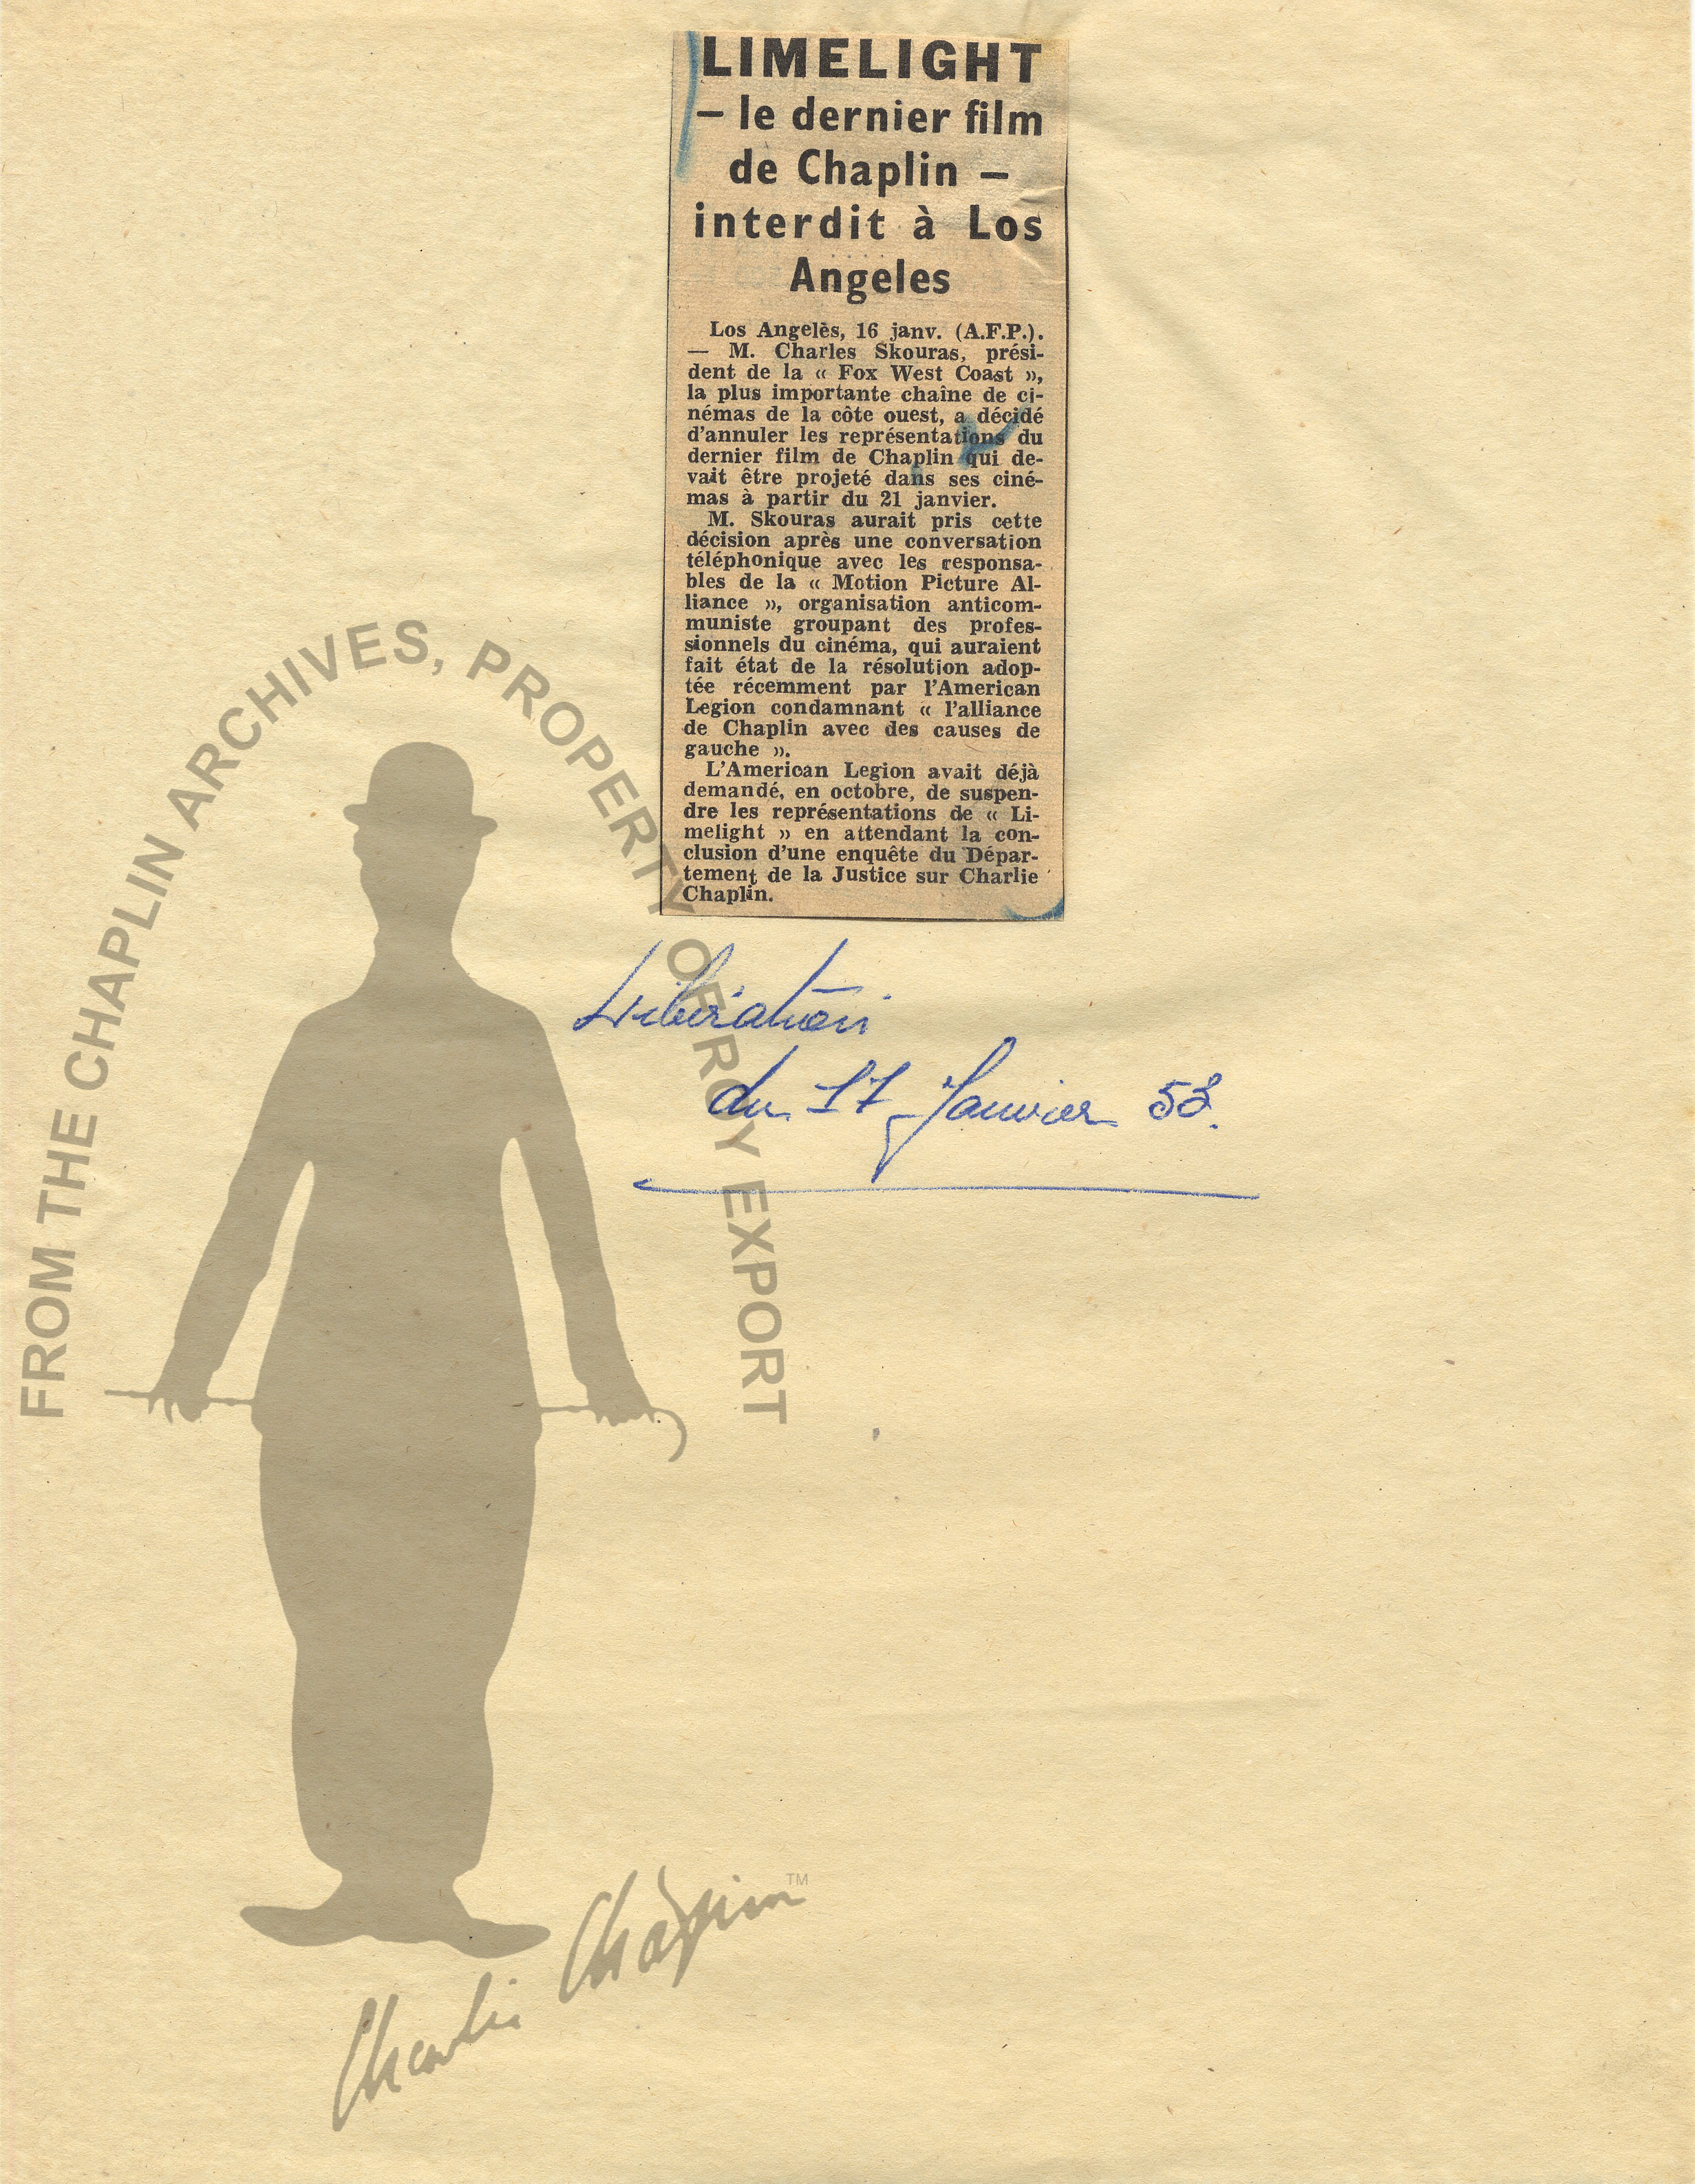 LIMELIGHT
– le dernier film
de Chaplin –
interdit à Los
Angeles
Los Angelès, 16 janv. (A.F.P.).
— M. Charles Skouras, prési-
dent de la « Fox West Coast »,
la plus importante chaîne de ci-
némas de la côte ouest, a décidé
d'annuler les représentations du
dernier film de Chaplin qui de-
vait être projeté dans ses ciné-
mas à partir du 21 janvier.
M. Skouras aurait pris cette
décision après une conversation
téléphonique avec les responsa-
bles de la « Motion Picture Al-
liance », organisation anticom-
muniste groupant des profes-
sionnels du cinéma, qui auraient
fait état de la résolution adop-
tée récemment par l'American
Legion condamnant « l'alliance
de Chaplin avec des causes de
gauche ».
L'American Legion avait déjà
demandé, en octobre, de suspen-
dre les représentations de « Li-
melight » en attendant la con-
clusion d'une enquête du Dépar-
tement de la Justice sur Charlie
Chaplin.
Libération
du 17 Janvier 53.
FROM THE CHAPLIN ARCHIVES, PROPERTY OF ROY EXPORT
Charlie Chaplin TM